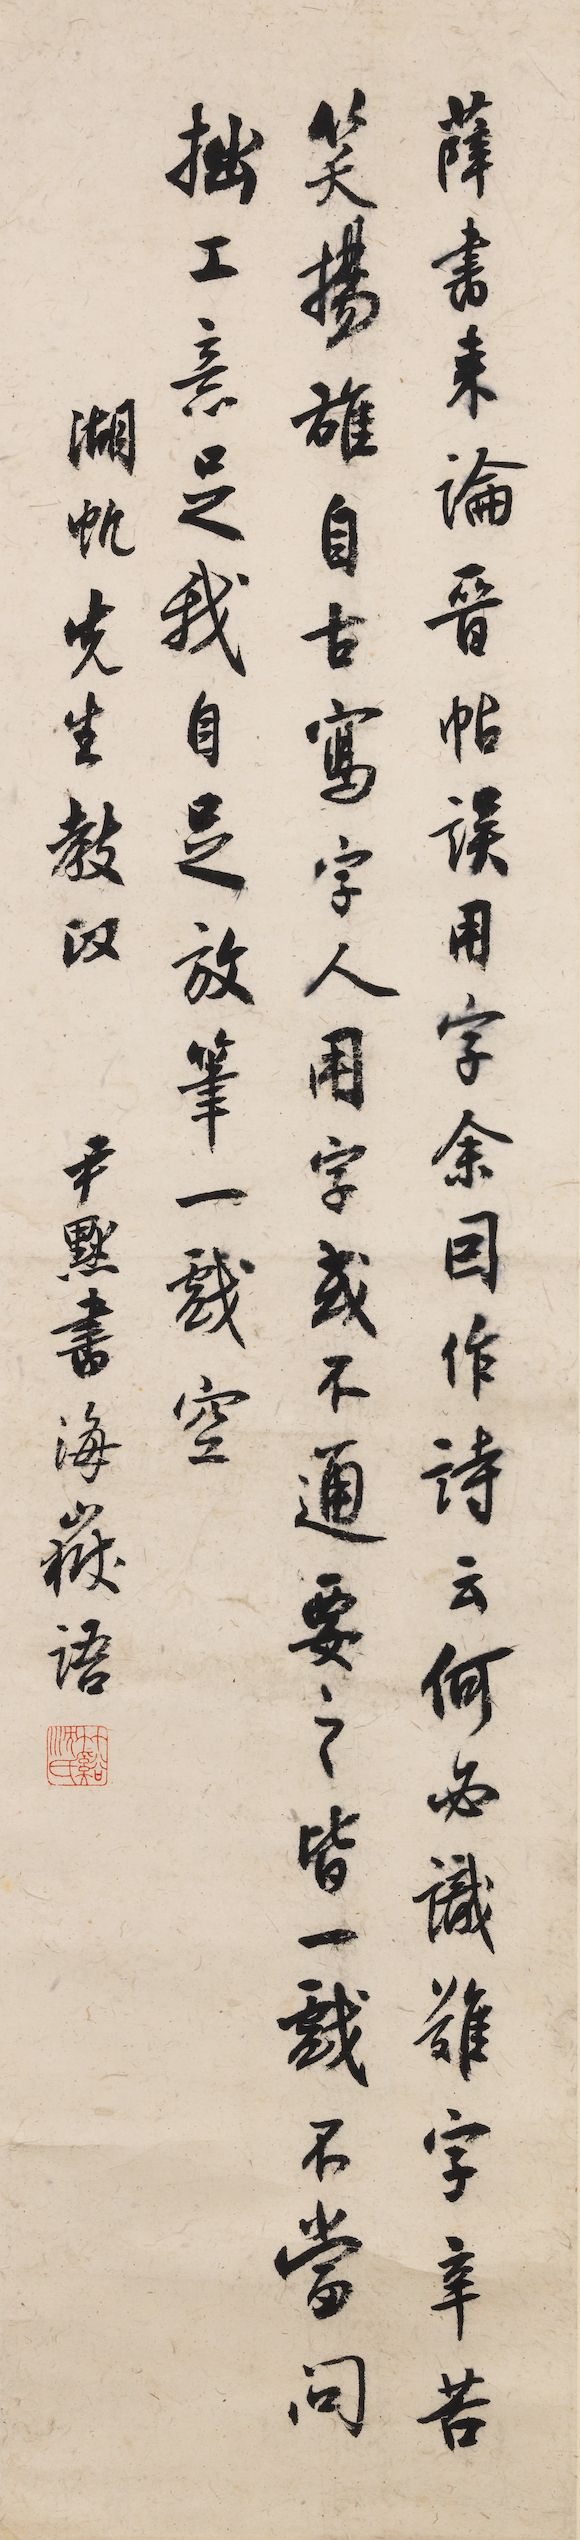 薛書來論晉帖誤用字余因作詩云何必識難字辛苦
笑揚雄自古寫字人用字或不通要之皆一戲不當問
拙工意足我自足放筆一戲空
湖帆先生教正 尹默書海嶽語
竹谿沈氏